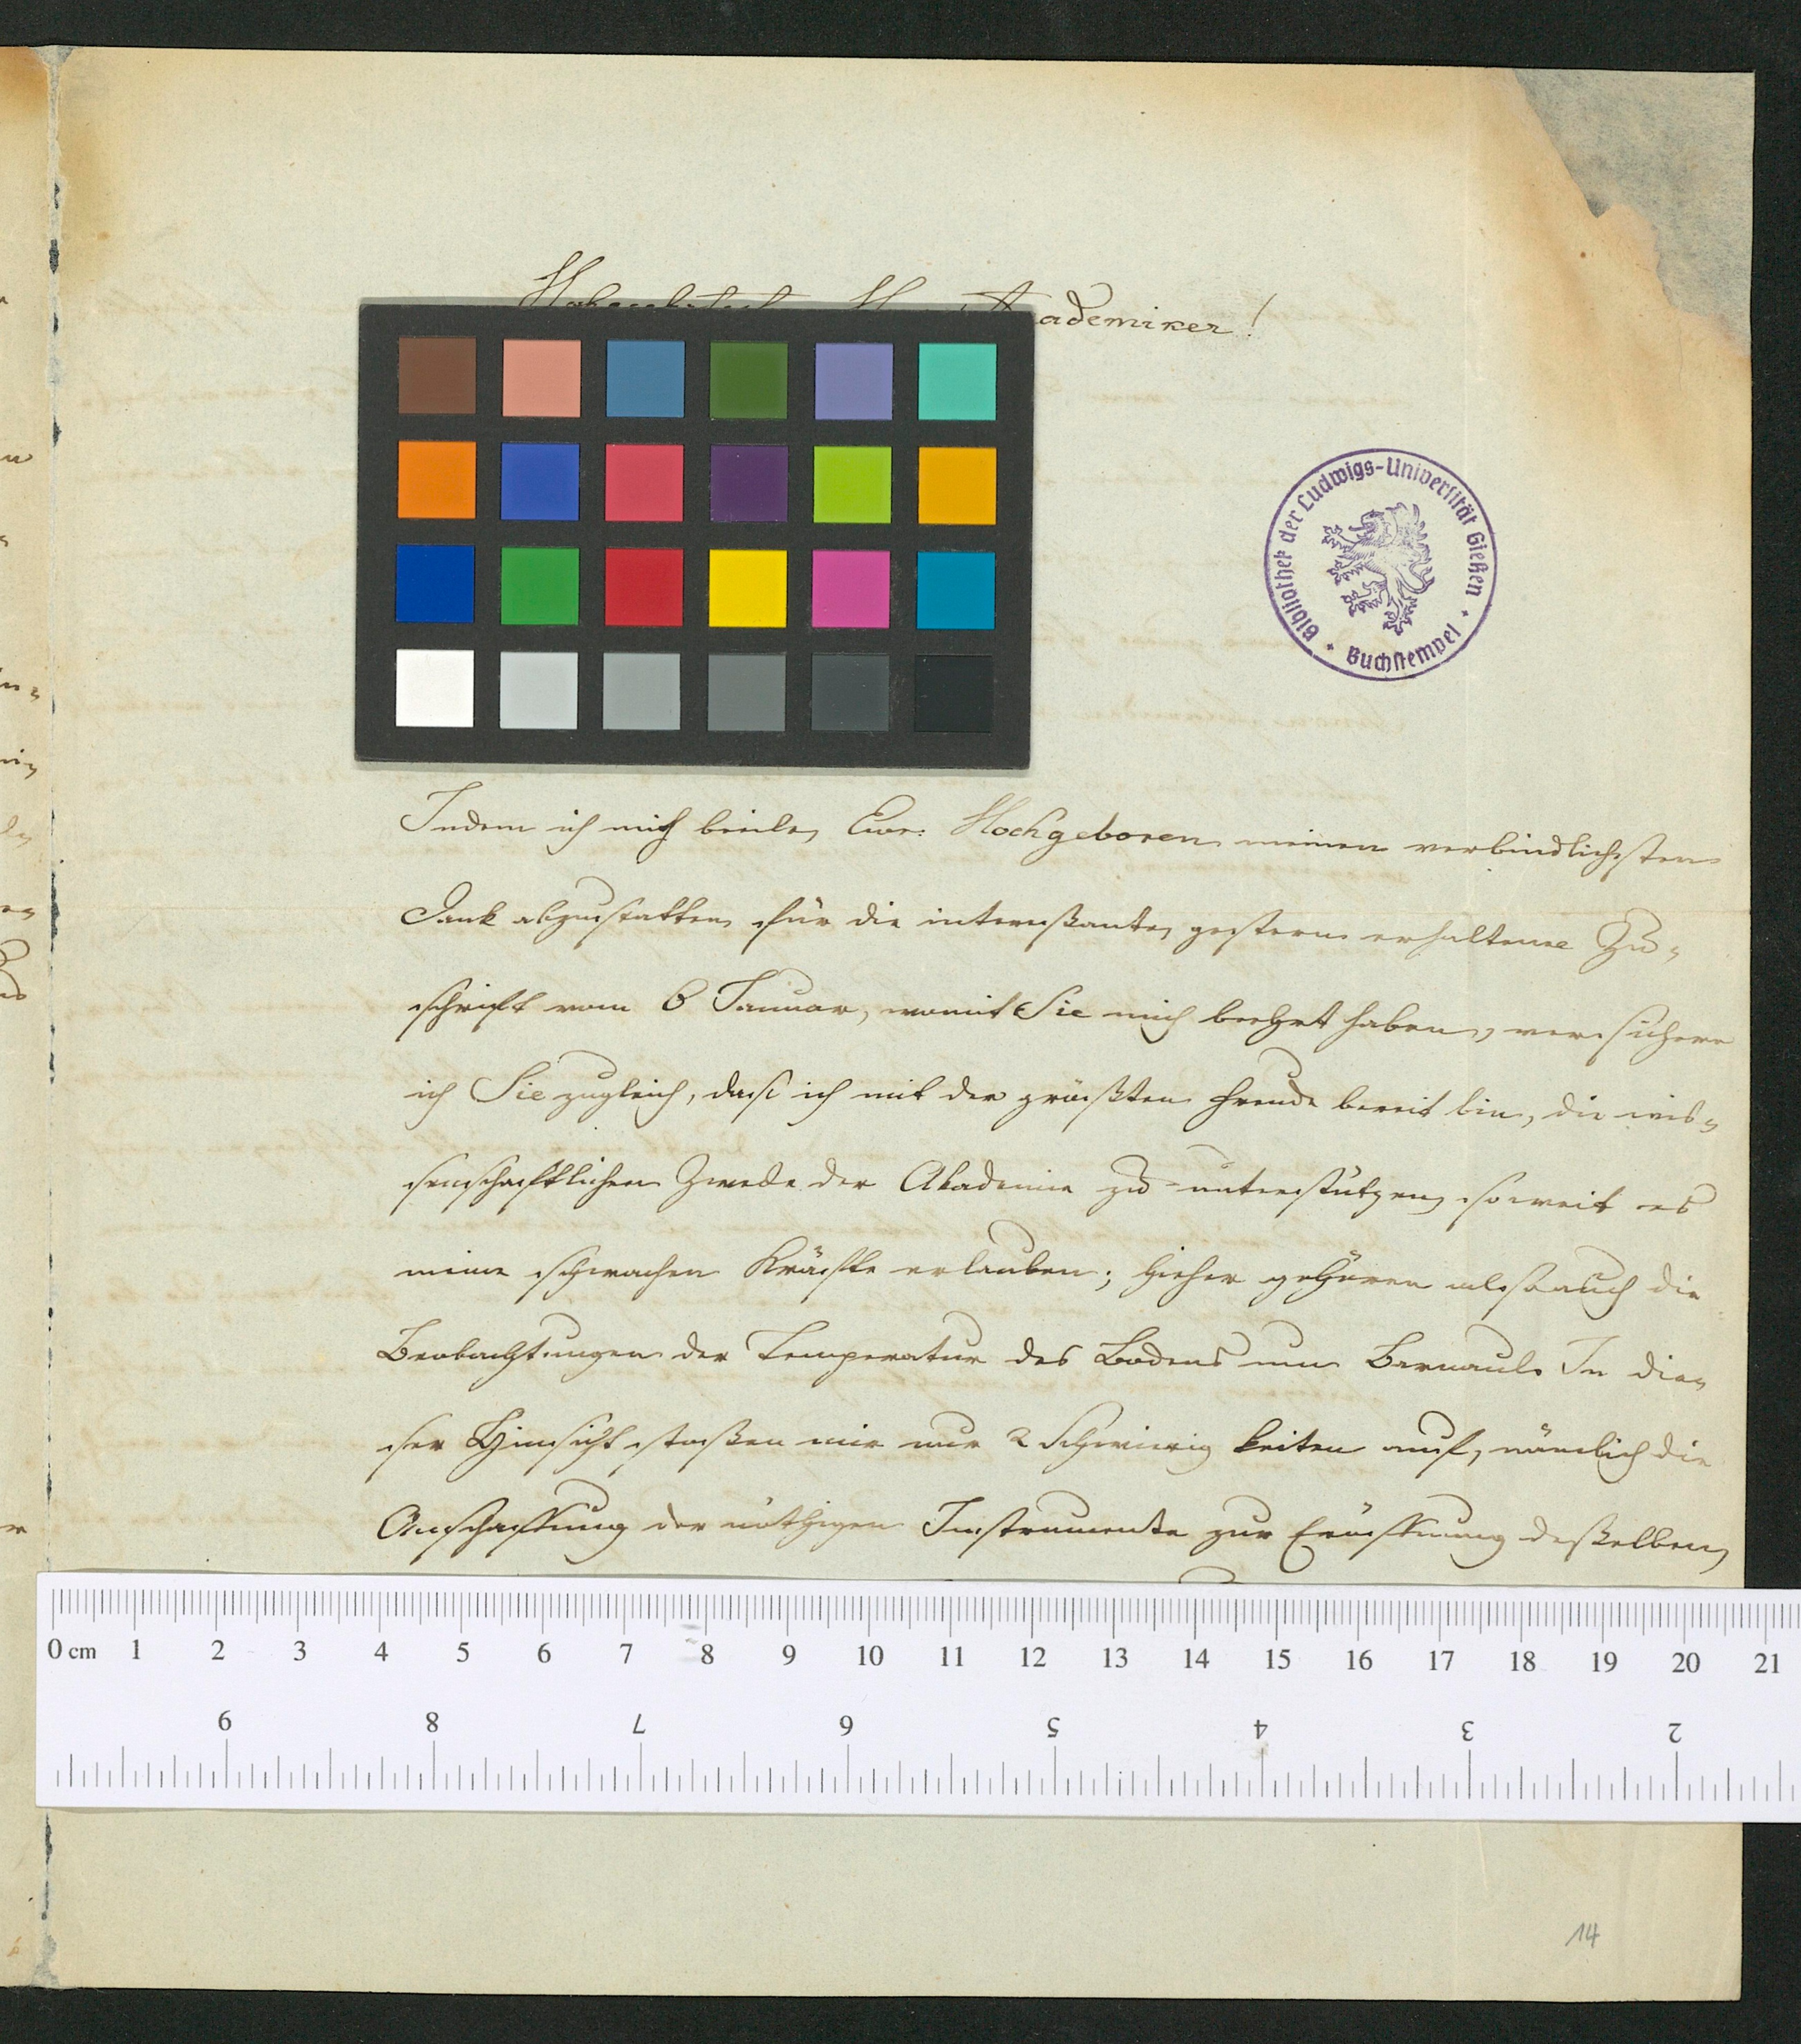 Akademiker!
Bibliothek der Ludwigs-Universität Gießen
Buchstempel
Indem ich mich beeile, Euer: Hochgeboren meinen verbindlichsten
Dank abzustatten für die interessante, gestern erhaltene Zu-
schrift vom 6 Januar, womit Sie mich beehrt haben, versichere
ich Sie zugleich, dass ich mit der größten Freude bereit bin, die wis-
senschaftlichen Zwecke der Akademie zu unterstützen, soweit es
meine schwachen Kräfte erlauben; hieher gehören also auch die
Beobachtungen der Temperatur des Bodens um Barnaul. In die-
ser Hinsicht stoßen mir nur 2 Schwierigkeiten auf, nämlich die
Anschaffung der nöthigen Instrumente zur Eröffnung desselben,
0 cm 1 2 3 4 5 6 7 8 9 10 11 12 13 14 15 16 17 18 19 20 21
9 8 7 6 5 4 3 2
14